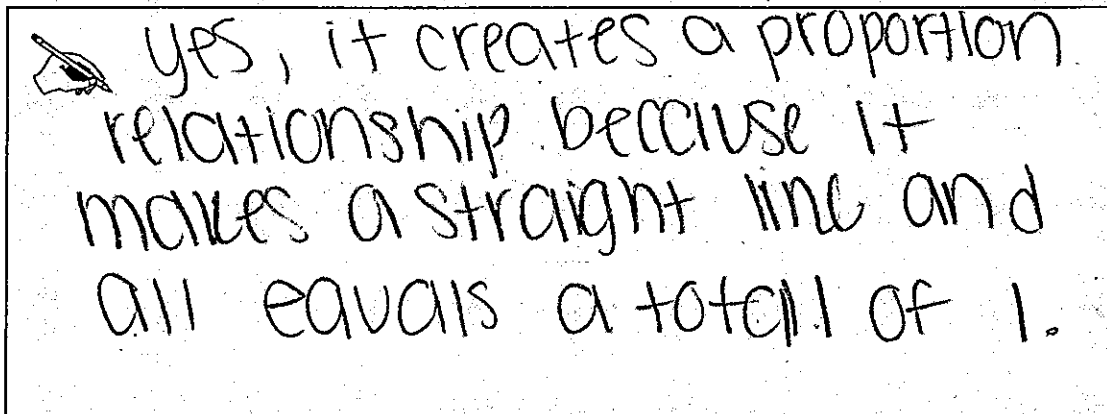 yes, it creates a proportion
relationship because it
makes a straight line and
all equals a totall of 1.